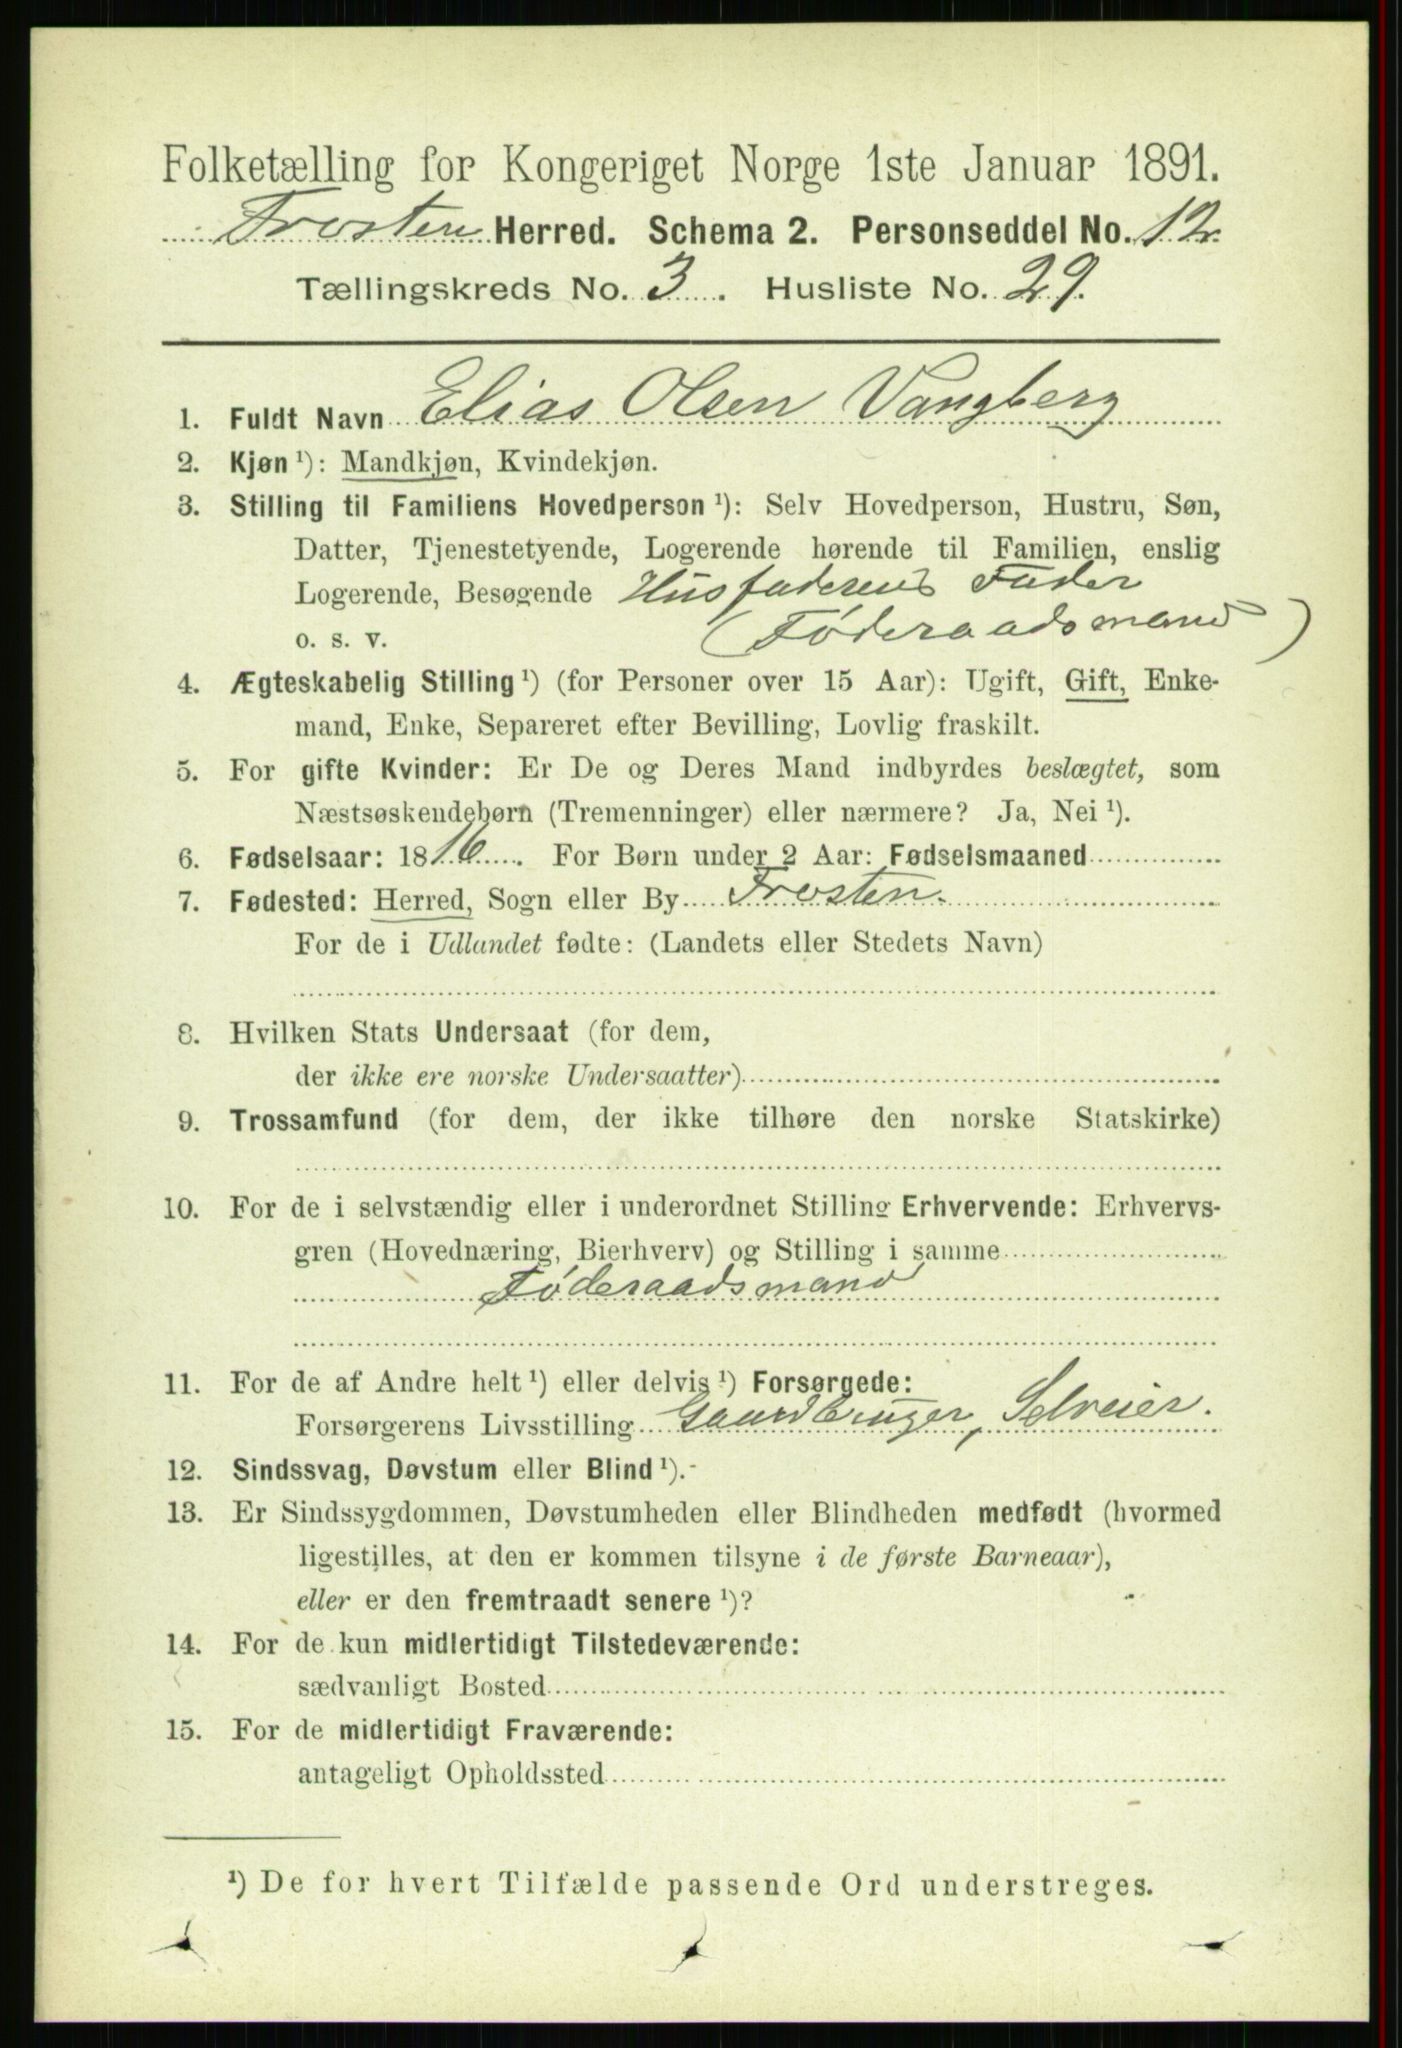 Folketælling for Kongeriget Norge 1ste Januar 1891.
Frosten Herred. Schema 2. Personseddel No. 12.
Tællingskreds No. 3. Husliste No. 29.
1. Fuldt Navn Elias Olsen Vangberg
2. Kjøn ¹): Mandkjøn, Kvindekjøn.
3. Stilling til Familiens Hovedperson ¹): Selv Hovedperson, Hustru, Søn,
Datter, Tjenestetyende, Logerende hørende til Familien, enslig
Logerende, Besøgende Husfaderens Fader
o. s. v. (Føderaadsmand)
4. Ægteskabelig Stilling ¹) (for Personer over 15 Aar): Ugift, Gift, Enke-
mand, Enke, Separeret efter Bevilling, Lovlig fraskilt.
5. For gifte Kvinder: Er De og Deres Mand indbyrdes beslægtet, som
Næstsøskendebørn (Tremenninger) eller nærmere? Ja, Nei ¹).
6. Fødselsaar: 1816. For Børn under 2 Aar: Fødselsmaaned
7. Fødested: Herred, Sogn eller By Frosten.
For de i Udlandet fødte: (Landets eller Stedets Navn)
8. Hvilken Stats Undersaat (for dem,
der ikke ere norske Undersaatter)
9. Trossamfund (for dem, der ikke tilhøre den norske Statskirke)
10. For de i selvstændig eller i underordnet Stilling Erhvervende: Erhvervs-
gren (Hovednæring, Bierhverv) og Stilling i samme
Føderaadsmand
11. For de af Andre helt ¹) eller delvis ¹) Forsørgede:
Forsørgerens Livsstilling Gaardbruger, Selveier.
12. Sindssvag, Døvstum eller Blind ¹).
13. Er Sindssygdommen, Døvstumheden eller Blindheden medfødt (hvormed
ligestilles, at den er kommen tilsyne i de første Barneaar),
eller er den fremtraadt senere ¹)?
14. For de kun midlertidigt Tilstedeværende:
sædvanligt Bosted
15. For de midlertidigt Fraværende:
antageligt Opholdssted
¹) De for hvert Tilfælde passende Ord understreges.